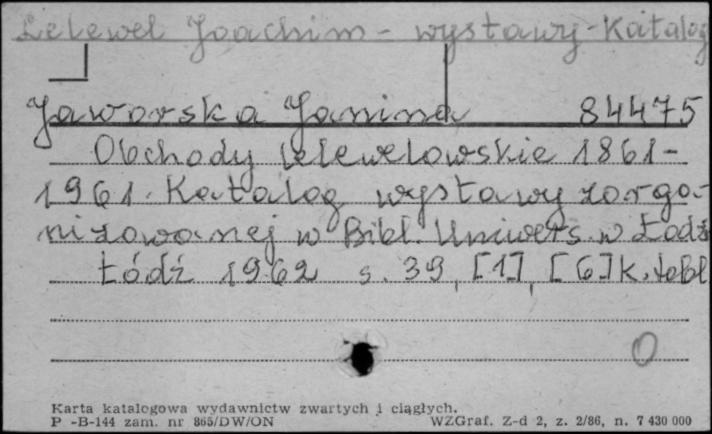 Lelewel Joachim - wystawy - Katalog
Jaworska Janina 84475
Obchody Lelewelowskie 1861-
1961. Katalog wystawy zorga-
nizowanej w Bibl. Univers. w Łodzi
Łódź 1962 s. 39, [1], [6] k. tabl
0
Karta katalogowa wydawnictw zwartych i ciągłych.
P -B-144 zam. nr 865/DW/ON WZGraf. Z-d 2, z. 2/86, n. 7 430 000